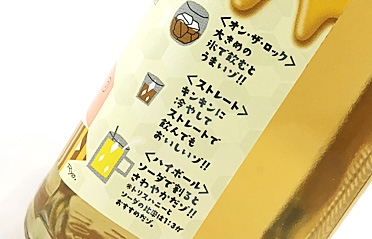 <オン・ザ・ロック>
大きめの
氷で飲むと
うまいゾ!!
<ストレート>
キンキンに
冷やして
ストレートで
飲んでも
おいしいゾ!!
<ハイボール>
ソーダで割ると
さわやかだゾ!!
*トリスハニーと
ソーダの比率は1:3が
おすすめだゾ。